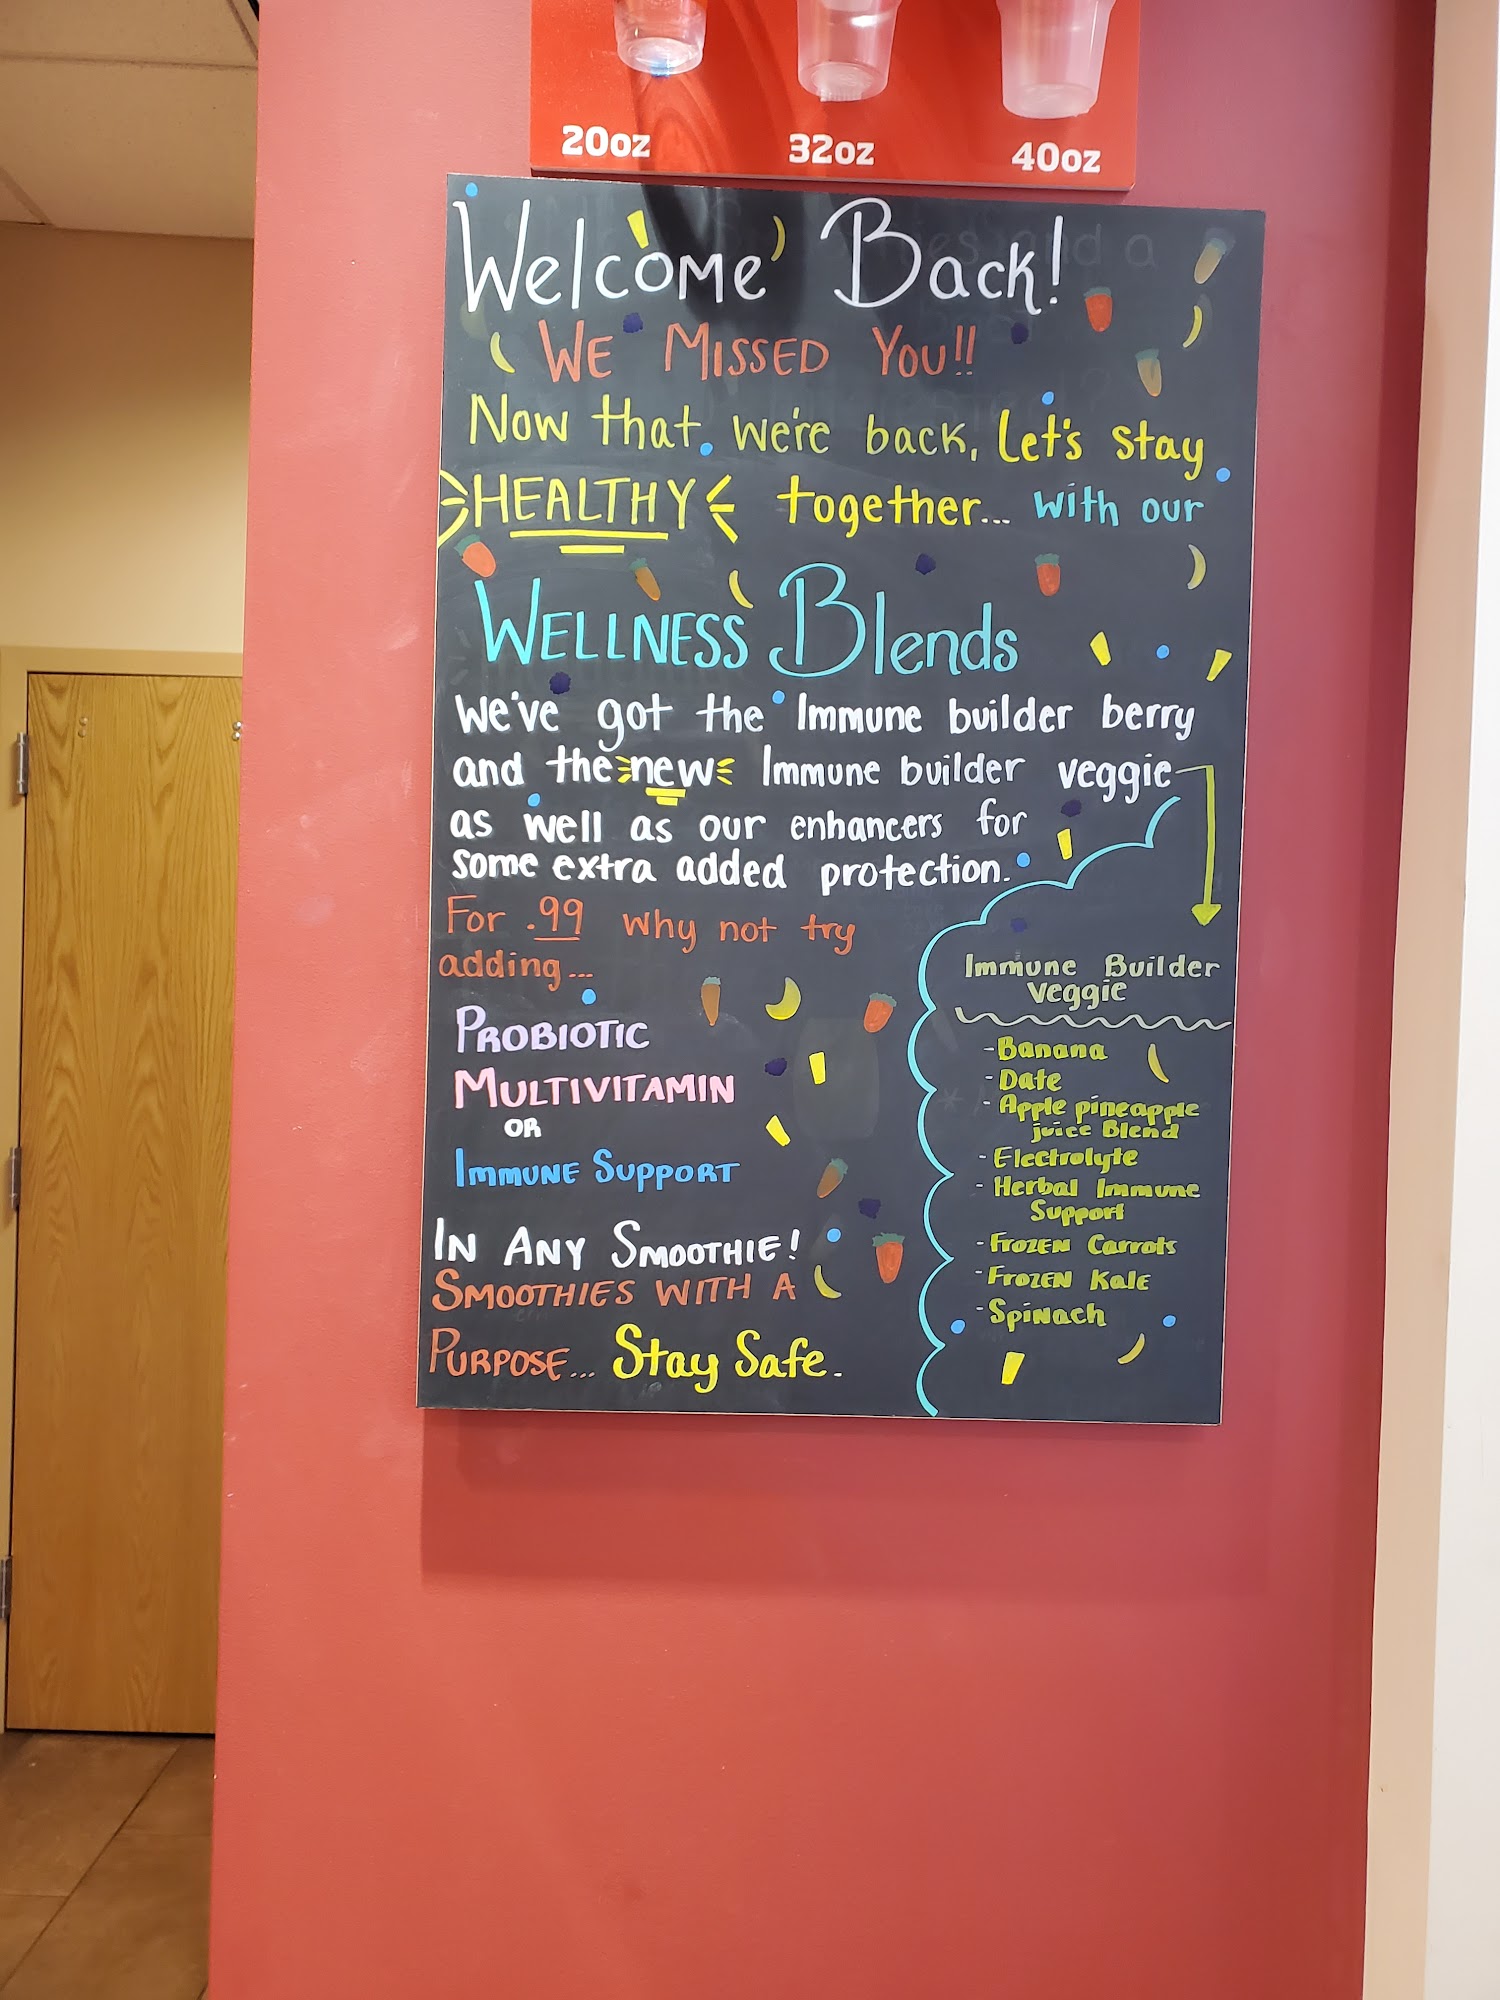 20oz 32oz 40oz
Welcome Back!
WE MISSED YOU!!
Now that we're back, Let's stay
HEALTHY together... with our
WELLNESS Blends
We've got the Immune builder berry
and the new Immune builder veggie
as well as our enhancers for
some extra added protection.
For .99 why not try
adding...
PROBIOTIC
MULTIVITAMIN
OR
IMMUNE SUPPORT
IN ANY SMOOTHIE!
SMOOTHIES WITH A
PURPOSE... Stay Safe.
Immune Builder
Veggie
- Banana
- Date
- Apple pineapple
juice Blend
- Electrolyte
- Herbal Immune
Support
- FROZEN Carrots
- FROZEN Kale
- Spinach